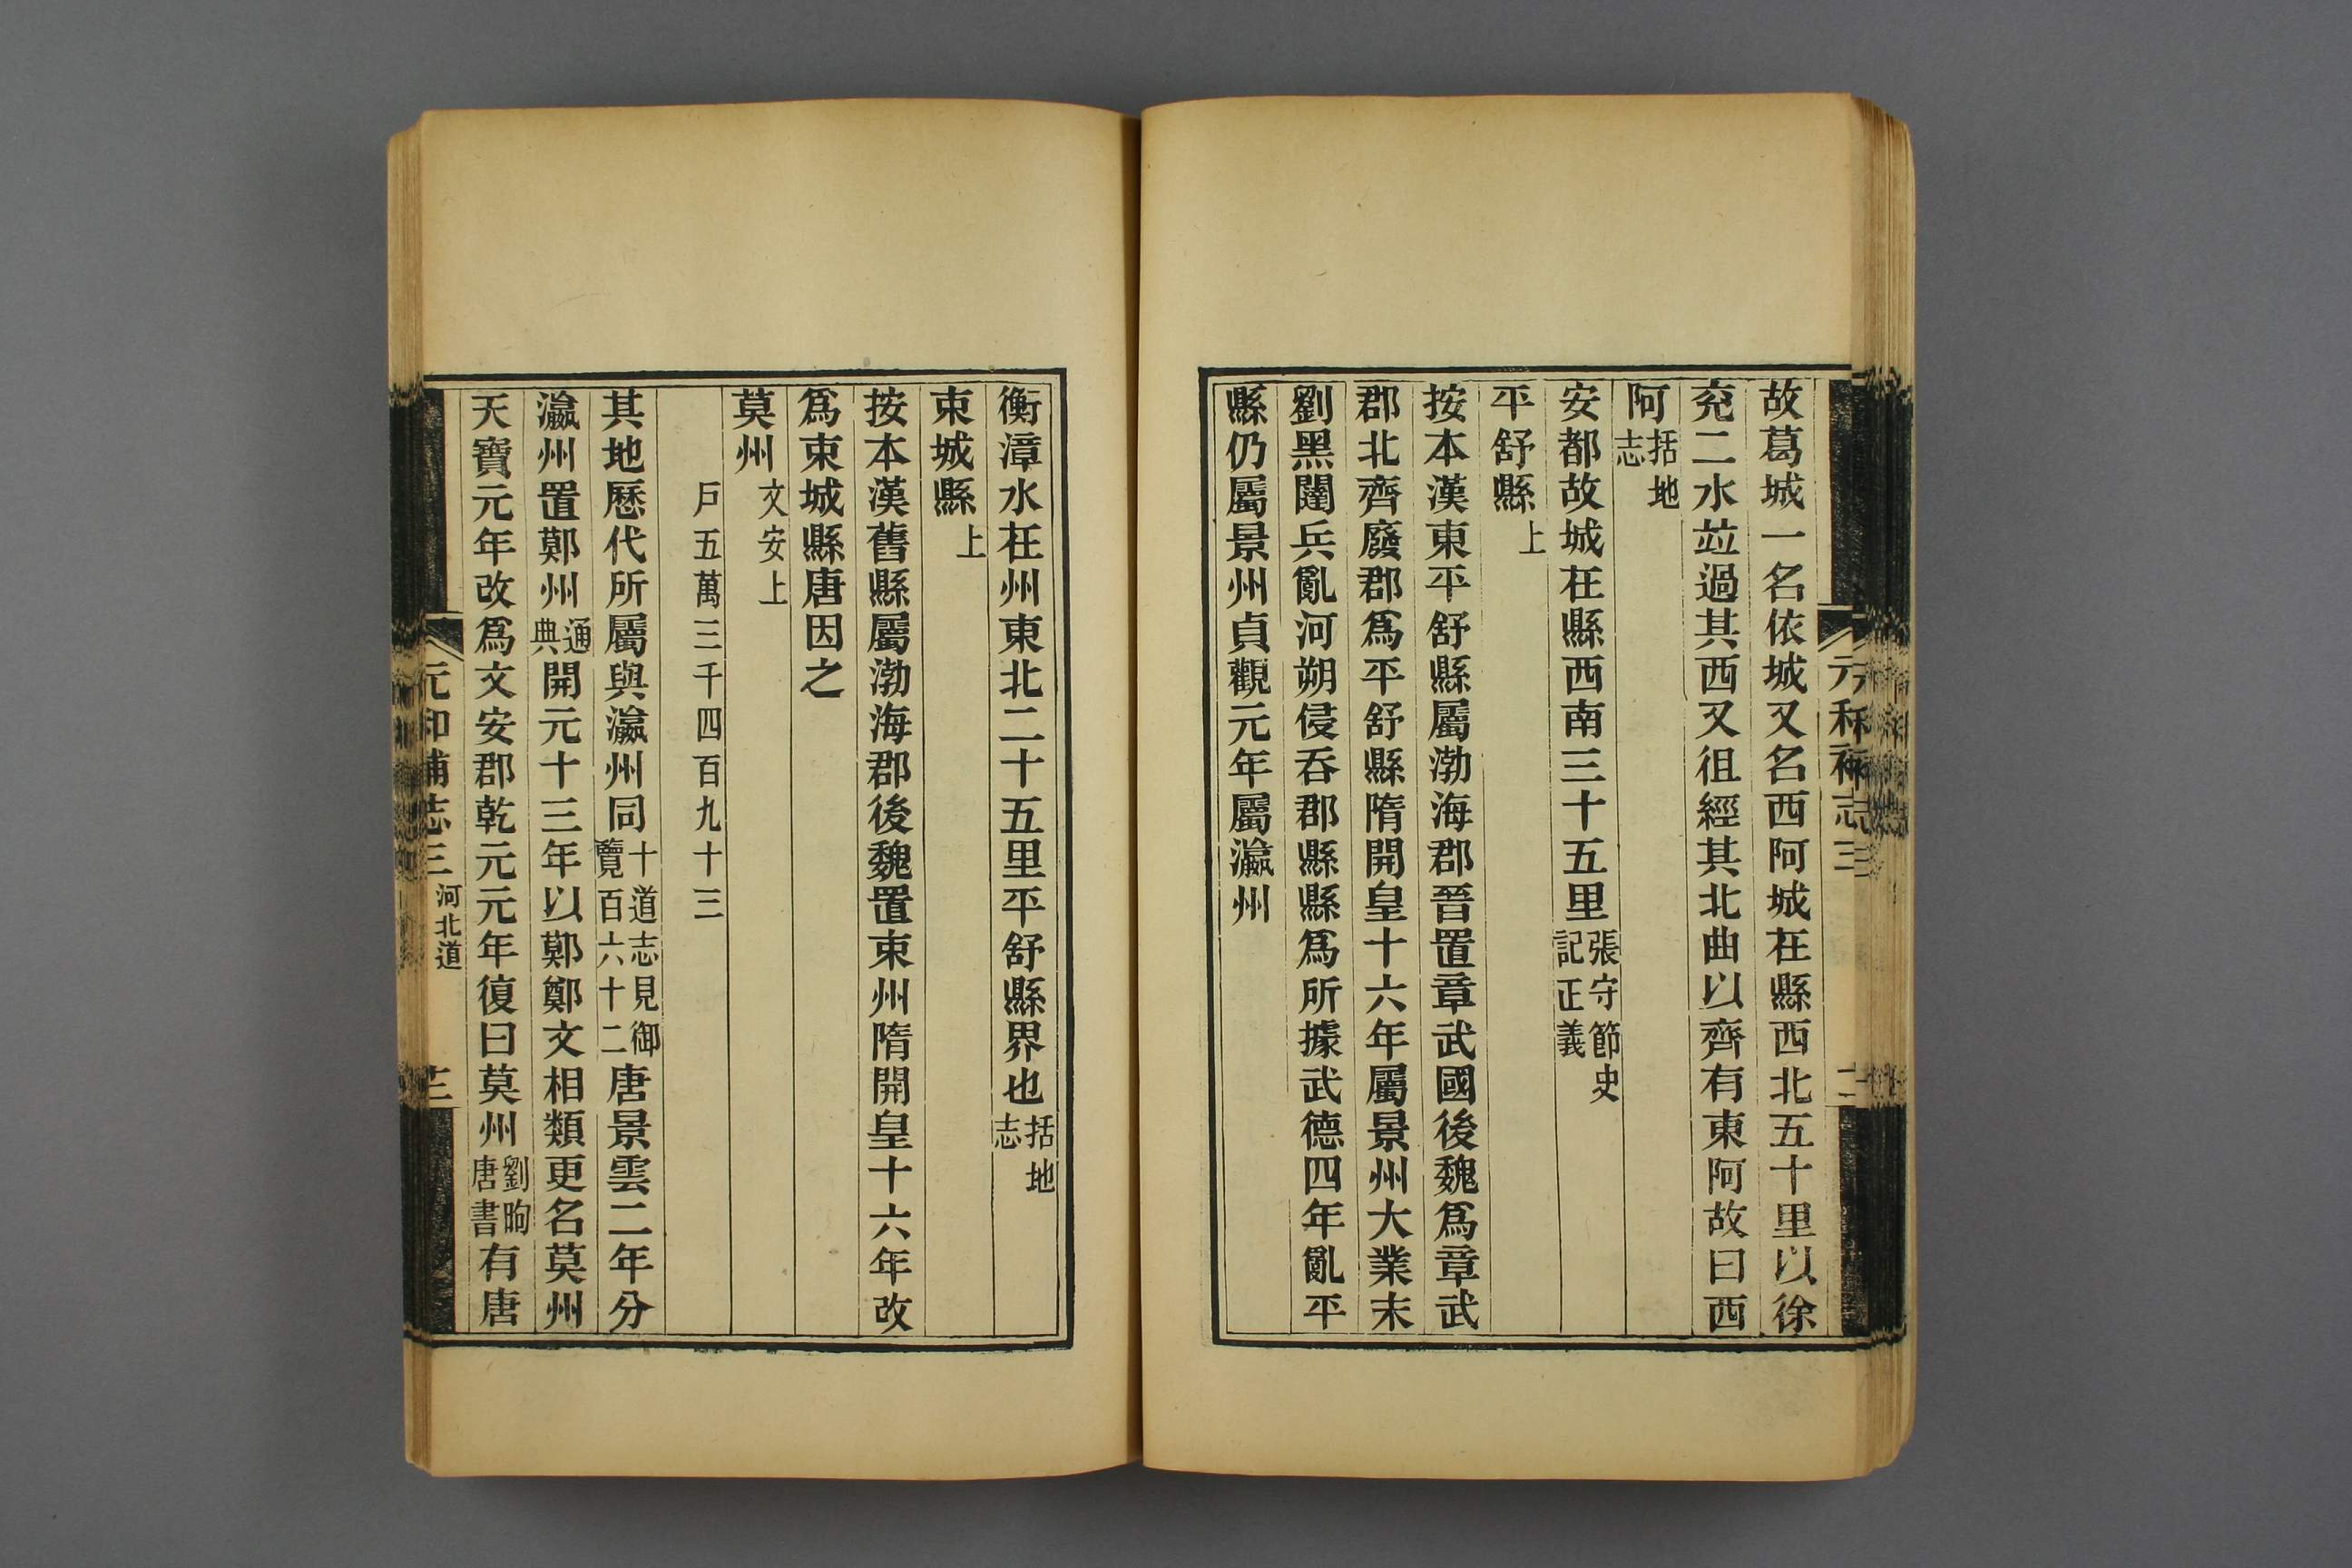 故葛城一名依城又名西阿城在縣西北五十里以徐
兖二水竝過其西又徂經其北曲以齊有東阿故曰西
阿括地志
安都故城在縣西南三十五里張守節史記正義
平舒縣上
按本漢東平舒縣屬渤海郡晉置章武國後魏爲章武
郡北齊廢郡爲平舒縣隋開皇十六年屬景州大業末
劉黑闥兵亂河朔侵吞郡縣縣爲所據武德四年亂平
縣仍屬景州貞觀元年屬瀛州
衡漳水在州東北二十五里平舒縣界也括地志
束城縣上
按本漢舊縣屬渤海郡後魏置束州隋開皇十六年改
爲束城縣唐因之
莫州文安上
戶五萬三千四百九十三
其地歷代所屬與瀛州同十道志見御覽百六十二唐景雲二年分
瀛州置鄚州通典開元十三年以鄚鄭文相類更名莫州
天寶元年改爲文安郡乾元元年復曰莫州劉昫唐書有唐
元和補志三 河北道